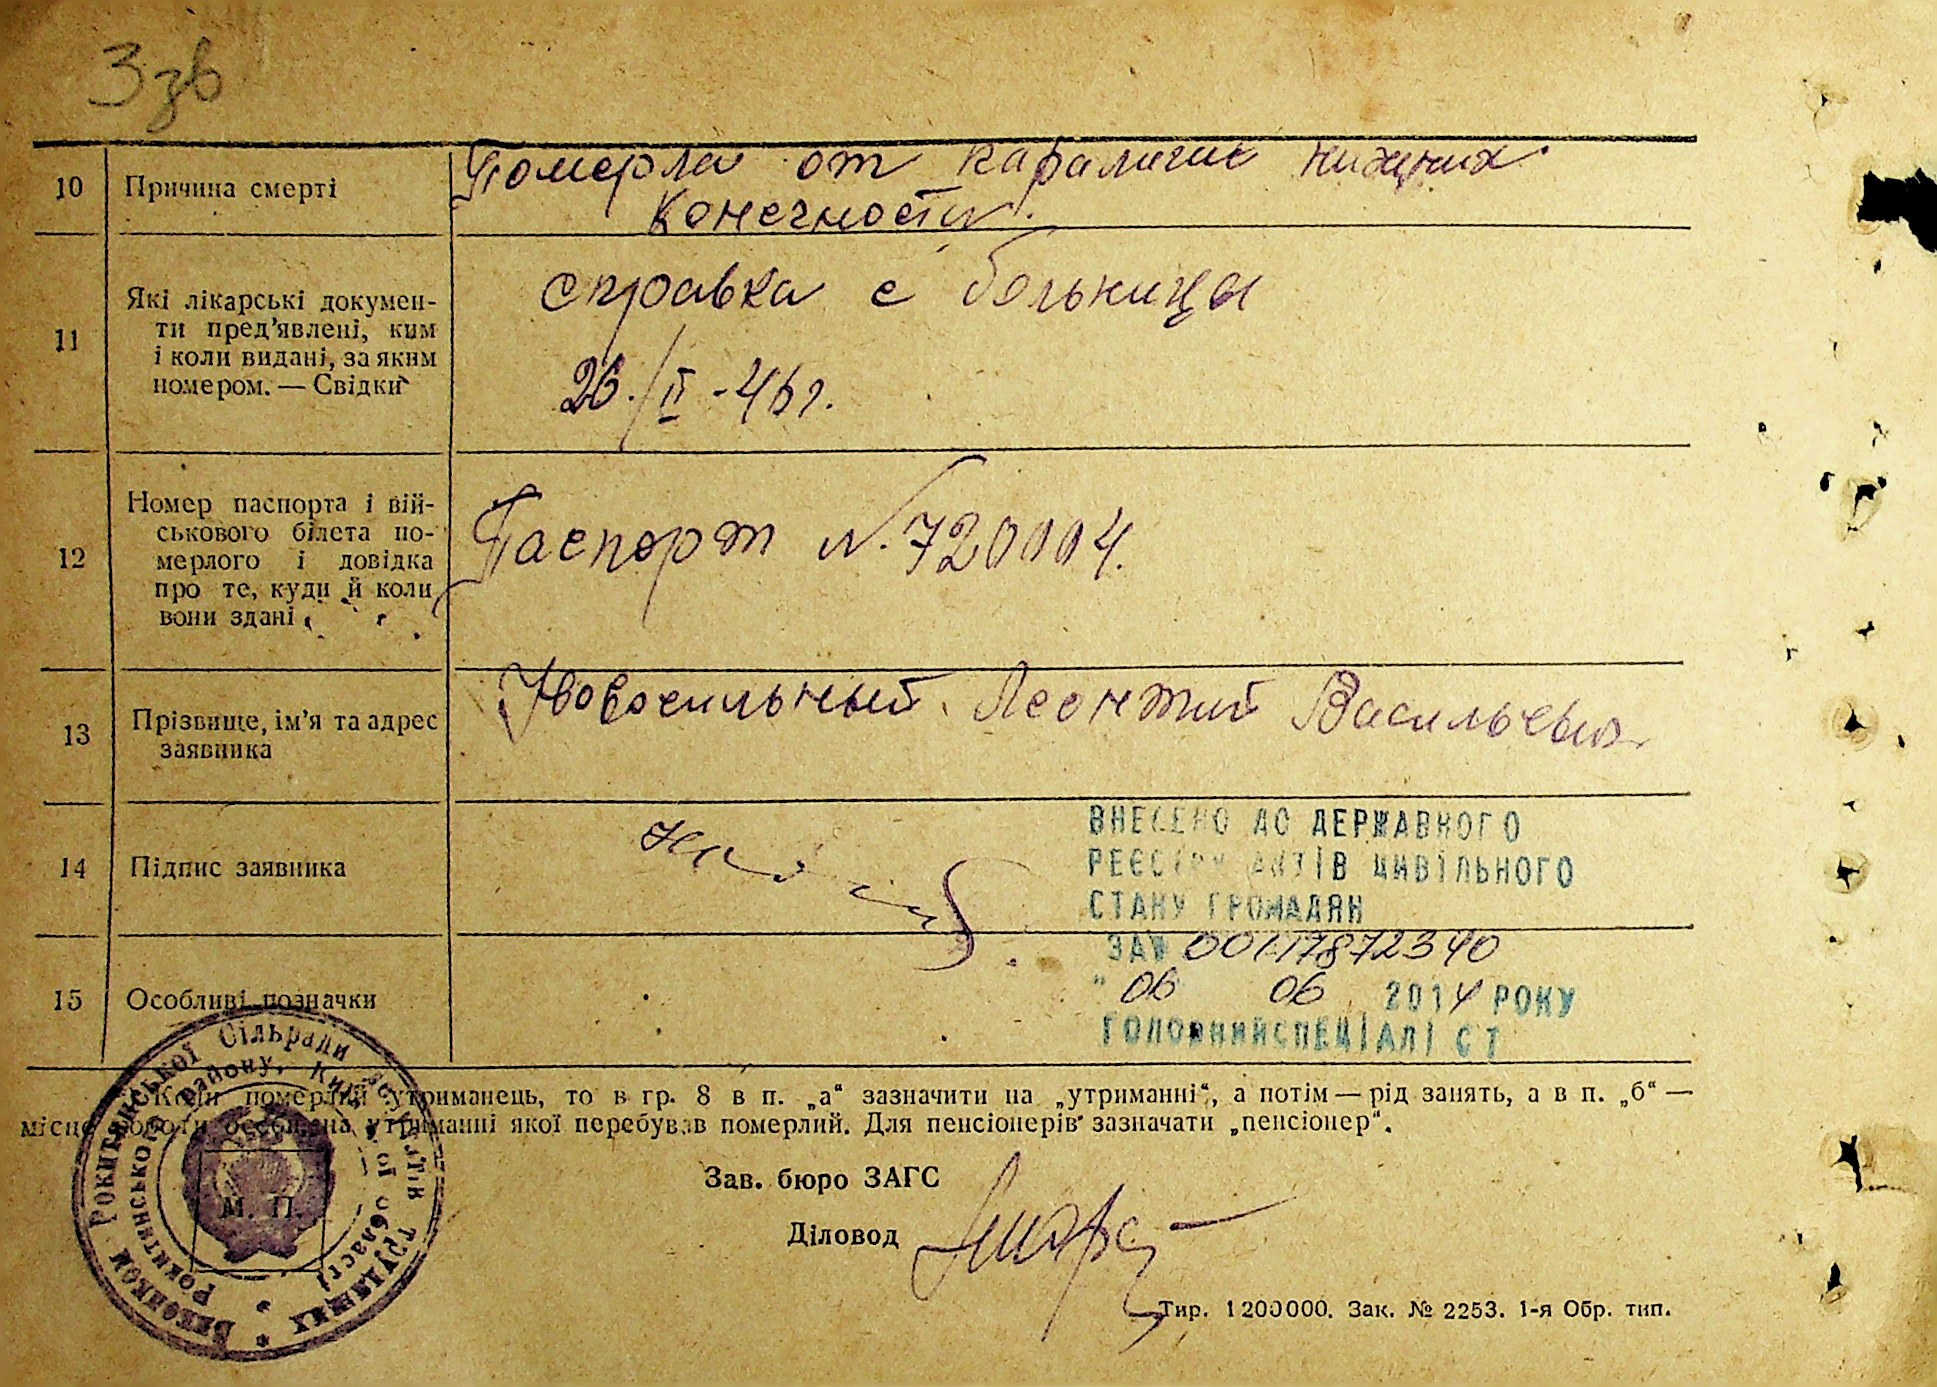 Ззв
10 Причина смерті
Померла от паралича нижних
конечности.
11 Які лікарські докумен-
ти пред'явлені, ким
і коли видані, за яким
номером. — Свідки
справка с больницы
26./II -46г.
12 Номер паспорта і вій-
ськового білета по-
мерлого і довідка
про те, куди й коли
вони здані
Паспорт N.720004.
13 Прізвище, ім'я та адрес
заявника
Новосильный Леонтий Васильевич
14 Підпис заявника
ВНЕСЕНО ДО ДЕРЖАВНОГО
РЕЄСТРУ АКТІВ ЦИВІЛЬНОГО
СТАНУ ГРОМАДЯН
ЗА № 00117872340
" 06 06 2014 РОКУ
ГОЛОВНИЙ СПЕЦІАЛІСТ
15 Особливі позначки
Коли померлий утриманець, то в гр. 8 в п. „а“ зазначити на „утриманні“, а потім — рід занять, а в п. „б“ —
місце роботи особи, на утриманні якої перебував померлий. Для пенсіонерів зазначати „пенсіонер“.
Виконком Рокитянської Сільради депутатів трудящих
Рокитянського району, Київської області
М. П.
Зав. бюро ЗАГС
Діловод
Тир. 1200000. Зак. № 2253. 1-я Обр. тип.